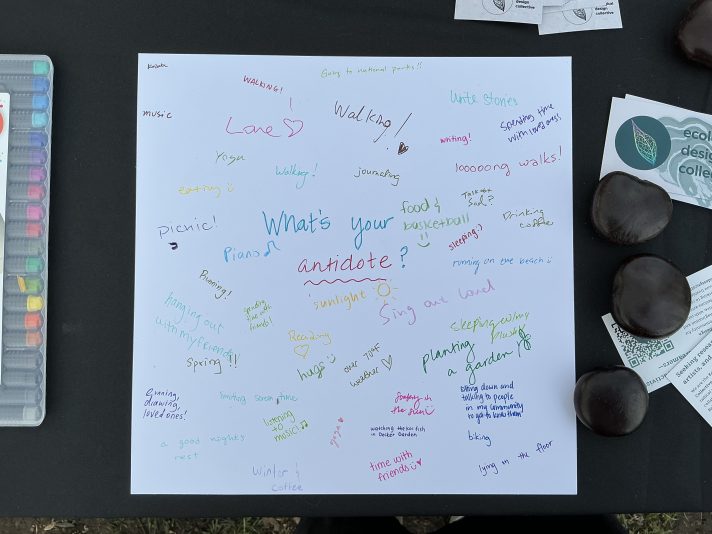 design
collective
dual
design
collective
Going to national parks!!
WALKING!
music
Love
Walking!
Write stories
writing!
Spending time
with loved ones!
Yoga
Walking!
journaling
looooong walks!
eating
picnic!
What's your
antidote?
food &
basketball
!!
Drinking
coffee
Piano
sleeping :)
running on the beach
Running!
sunlight
Sing out loud
hanging out
with my friends
spending
time with
friends!
Reading
sleeping w/my
Spring!!
hugs
over 70°F
weather
planting
a garden!
Running,
drawing,
loved ones!
limiting screen time
listening
to music!
the sun
sitting down and
talking to people
in my community
to get to know them
a good nights
rest
yoga
watching the koi fish
in Decker Garden
biking
Winter &
coffee
time with
friends
lying on the floor
ecolo
design
collec
Seeking resea
artists, and